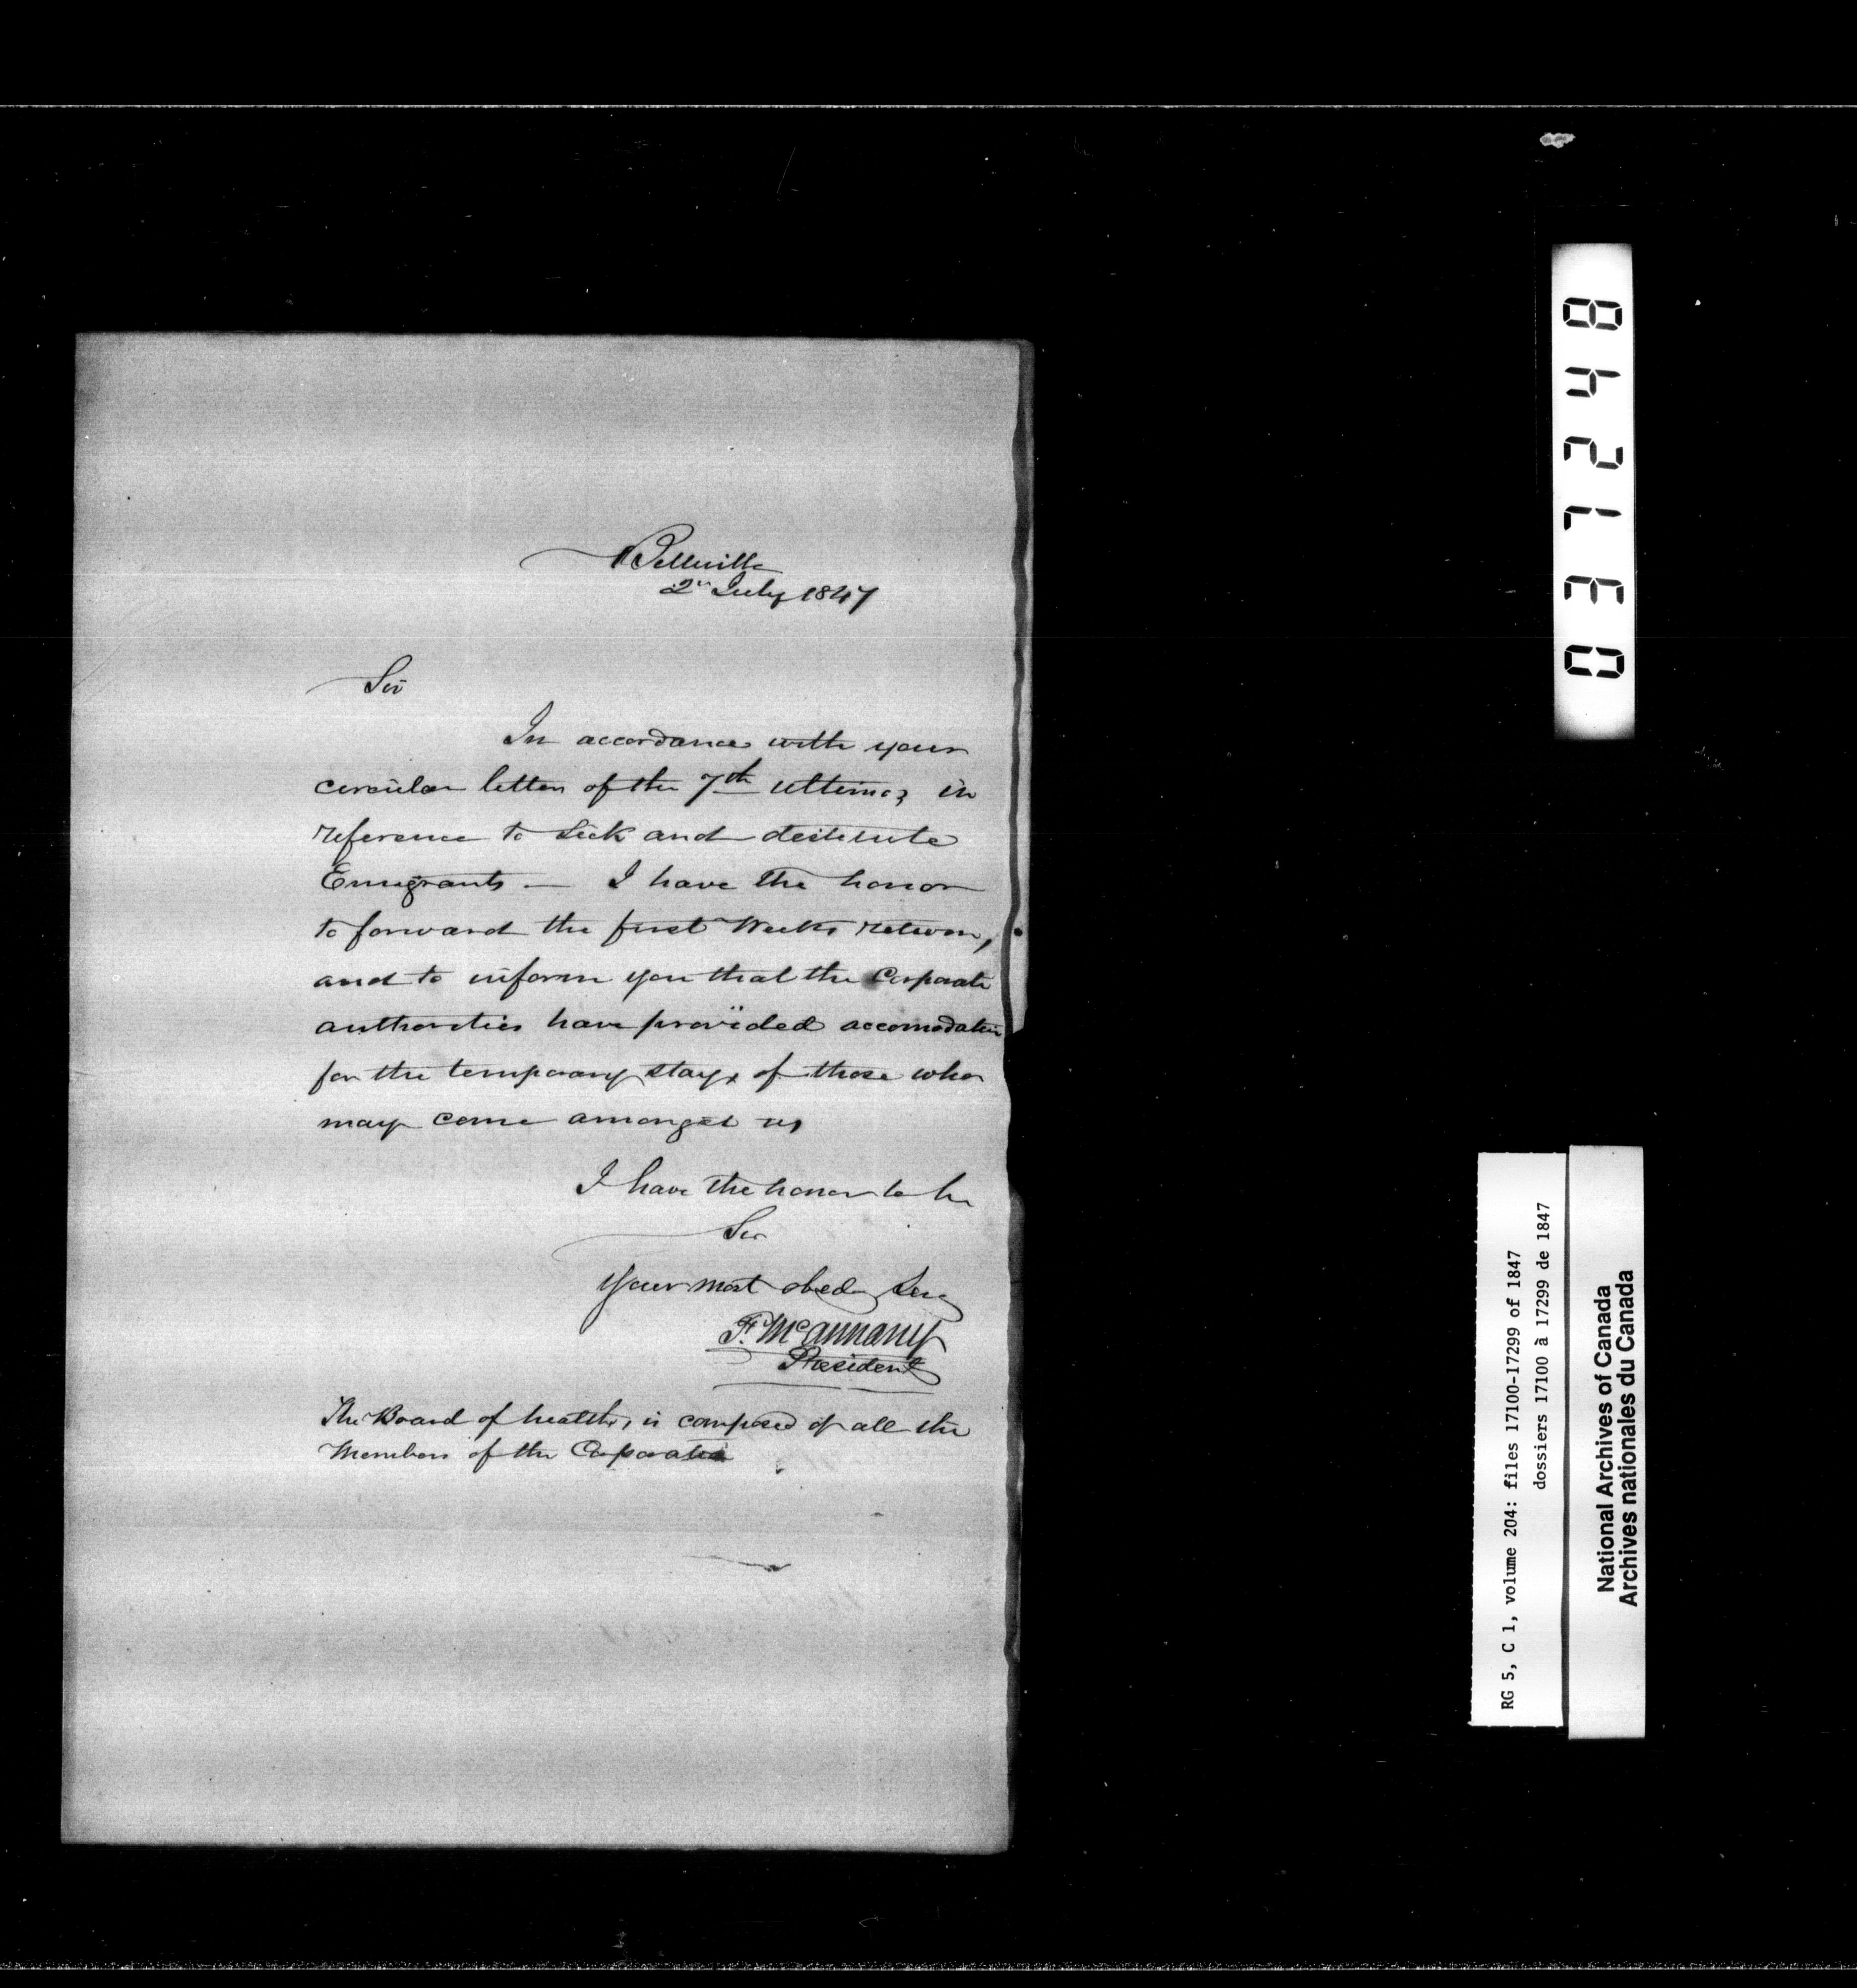 Belleville
2d July 1847
Sir
In accordance with your
circular letter of the 7th ultimo, in
reference to Sick and destitute
Emigrants — I have the honor
to forward the first Weeks return,
and to inform you that the Corporate
authorities have provided accomodation
for the temporary stay, of those who
may come amongst us
I have the honor to be
Sir
Your most obed Serv
F. McAnnany
President
The Board of health, is composed of all the
Members of the Corporation
031248
RG 5, C 1, volume 204: files 17100-17299 of 1847
dossiers 17100 à 17299 de 1847
National Archives of Canada
Archives nationales du Canada